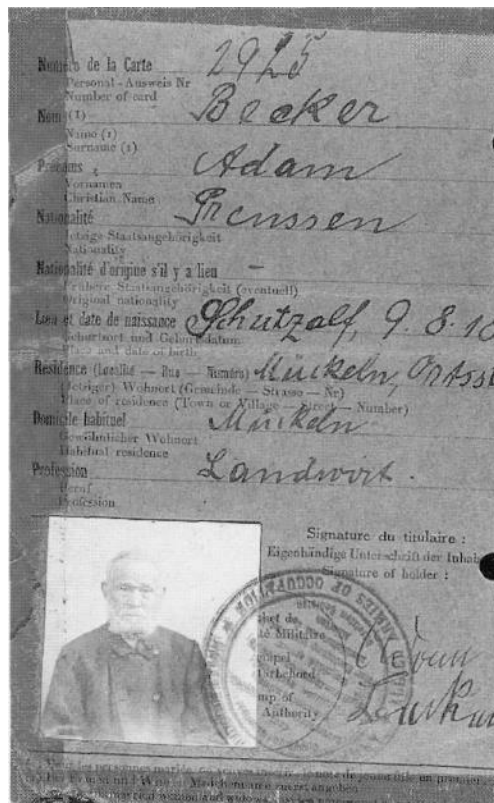 Numéro de la Carte 1925
Personal-Ausweis Nr
Number of card
Nom (1) Becker
Name (1)
Surname (1)
Prénoms Adam
Vornamen
Christian Name
Nationalité Preussen
Jetzige Staatsangehörigkeit
Nationality
Nationalité d'origine s'il y a lieu –
Frühere Staatsangehörigkeit (eventuell)
Original nationality
Lieu et date de naissance Schutzalf, 9. 8. 18
Geburtsort und Geburtsdatum
Place and date of birth
Residence (Localité — Rue — Numéro) Mückeln, Ortsst
(Jetziger) Wohnort (Gemeinde — Strasse — Nr)
Place of residence (Town or Village — Street — Number)
Domicile habituel Mückeln
Gewöhnlicher Wohnort
Habitual residence
Profession Landwirt.
Beruf
Profession
Signature du titulaire :
Eigenhändige Unterschrift der Inhab
Signature of holder :
ARMIES OF OCCUPATION
het de
té Militaire
mp of
Authority